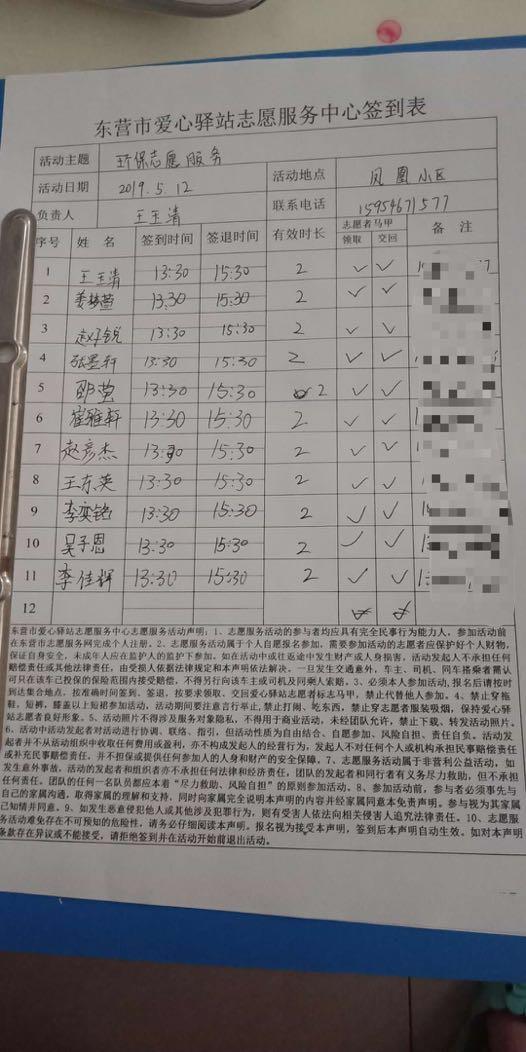 东营市爱心驿站志愿服务中心签到表
活动主题 环保志愿服务
活动日期 2019.5.12 活动地点 凤凰小区
负责人 王玉清 联系电话 15954671577
序号 姓 名 签到时间 签退时间 有效时长 志愿者马甲 领取 交回 备 注
1 王玉清 13:30 15:30 2 ✓ ✓
2 姜梦萱 13:30 15:30 2 ✓ ✓
3 13:30 15:30 2 ✓ ✓
4 张墨轩 13:30 15:30 2 ✓ ✓
5 邵萱 13:30 15:30 2 ✓ ✓
6 崔雅轩 13:30 15:30 2 ✓ ✓
7 赵彦杰 13:30 15:30 2 ✓ ✓
8 王东英 13:30 15:30 2 ✓ ✓
9 李奕铭 13:30 15:30 2 ✓ ✓
10 吴子恩 13:30 15:30 2 ✓ ✓
11 李佳辉 13:30 15:30 2 ✓ ✓
12
东营市爱心驿站志愿服务中心志愿服务活动声明：1、志愿服务活动的参与者均应具有完全民事行为能力人，参加活动前
在东营市志愿服务网完成个人注册。2、志愿服务活动属于个人自愿报名参加，需要参加活动的志愿者应保护好个人财物，
保证自身安全，未成年人应在监护人的监护下参加。如在活动中或往返途中发生财产或人身损害，活动发起人不承担任何
赔偿责任或其他法律责任，由受损人依据法律规定和本声明依法解决。一旦发生交通意外，车主、司机、同车搭乘者需认
可只在该车已投保的保险范围内接受赔偿，不得另行向该车主或司机及同乘人索赔。3、必须本人参加活动，报名后请按时
到达集合地点，按准确时间签到、签退，按要求领取、交回爱心驿站志愿者标志马甲，禁止代替他人参加。4、禁止穿拖
鞋，短裤，膝盖以上短裙参加活动，活动期间要注意言行举止，禁止打闹、吃东西，禁止穿志愿者服装吸烟，保持爱心驿
站志愿者良好形象。5、活动照片不得涉及服务对象隐私，不得用于商业活动，未经团队允许，禁止下载、转发活动照片。
6、活动中活动发起者对活动进行协调、联络、指引，但活动性质为自由结合、自愿参加、风险自担、责任自负。活动发
起者并不从活动组织中收取任何费用或盈利，亦不构成发起人的经营行为，发起人不对任何个人或机构承担民事赔偿责任
或补充民事赔偿责任，并不担保或提供任何参加人的人身和财产的安全保障。7、志愿服务活动属于非营利公益活动，如
发生意外事故，活动的发起者和组织者亦不承担任何法律和经济责任，团队的发起者和同行者有义务尽力救助，但不承担
任何责任。团队的任何一名队员都应本着“尽力救助、风险自担”的原则参加活动。8、参加活动前，参与者必须事先与
自己的家属沟通，取得家属的理解和支持，同时向家属完全说明本声明的内容并经家属同意本免责声明。参与与视为其家属
已知情并同意。9、如发生恶意侵犯他人或其他涉及犯罪行为，则有受害人依法向相关侵害人追究法律责任。10、志愿服
务活动难免存在不可预知的危险性，请务必仔细阅读本声明。报名视为接受本声明，签到后本声明自动生效。如对本声明
条款存在异议或不能接受，请拒绝签到并在活动开始前退出活动。